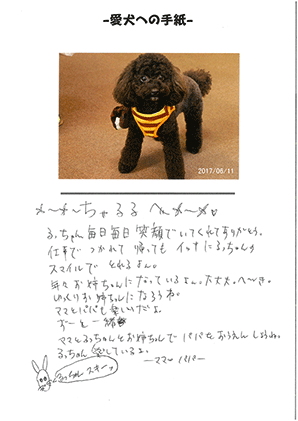 -愛犬への手紙-
2017/06/11
ちゃろる へ
ふぅちゃん毎日毎日笑顔でいてくれてありがとう。
仕事で つかれて 帰っても イッキにふぅちゃんの
スマイルで とれるよん。
年々お姉ちゃんになっているよん。大丈夫。
ゆっくりお姉ちゃんになろうね。
ママとパパも楽しいだよ。
ずーと一緒
ママとふぅちゃんとお姉ちゃんで パパをおうえんしようね。
ふぅちゃん 愛しているよ。
ーママ パパー
ふぅちゃん スキー